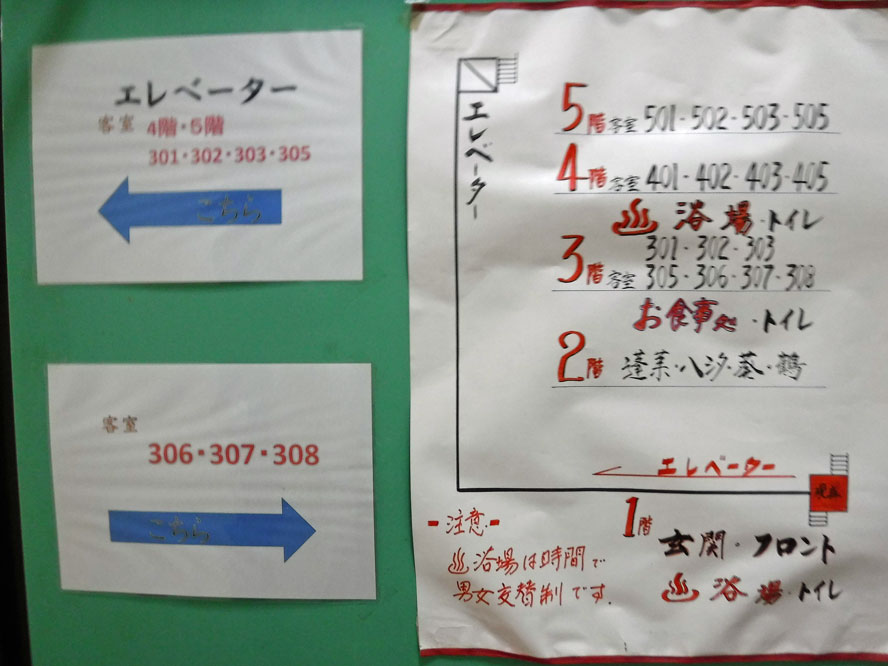 エレベーター
客室 4階・5階
301・302・303・305
こちら
客室
306・307・308
こちら
エレベーター
5階 客室 501-502-503-505
4階 客室 401-402-403-405
♨浴場・トイレ
301-302-303
3階 客室 305-306-307-308
お食事処・トイレ
2階 蓬莱・八汐・葵・鶴
エレベーター
現在
1階
玄関・フロント
♨浴場・トイレ
-注意-
♨浴場は時間で
男女交替制です.